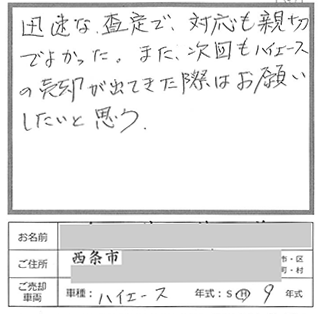 迅速な査定で、対応も親切
でよかった。また、次回もハイエース
の売却が出てきた際はお願い
したいと思う.
お名前
ご住所 西条市 市・区
町・村
ご売却
車両 車種: ハイエース 年式: S H 9 年式